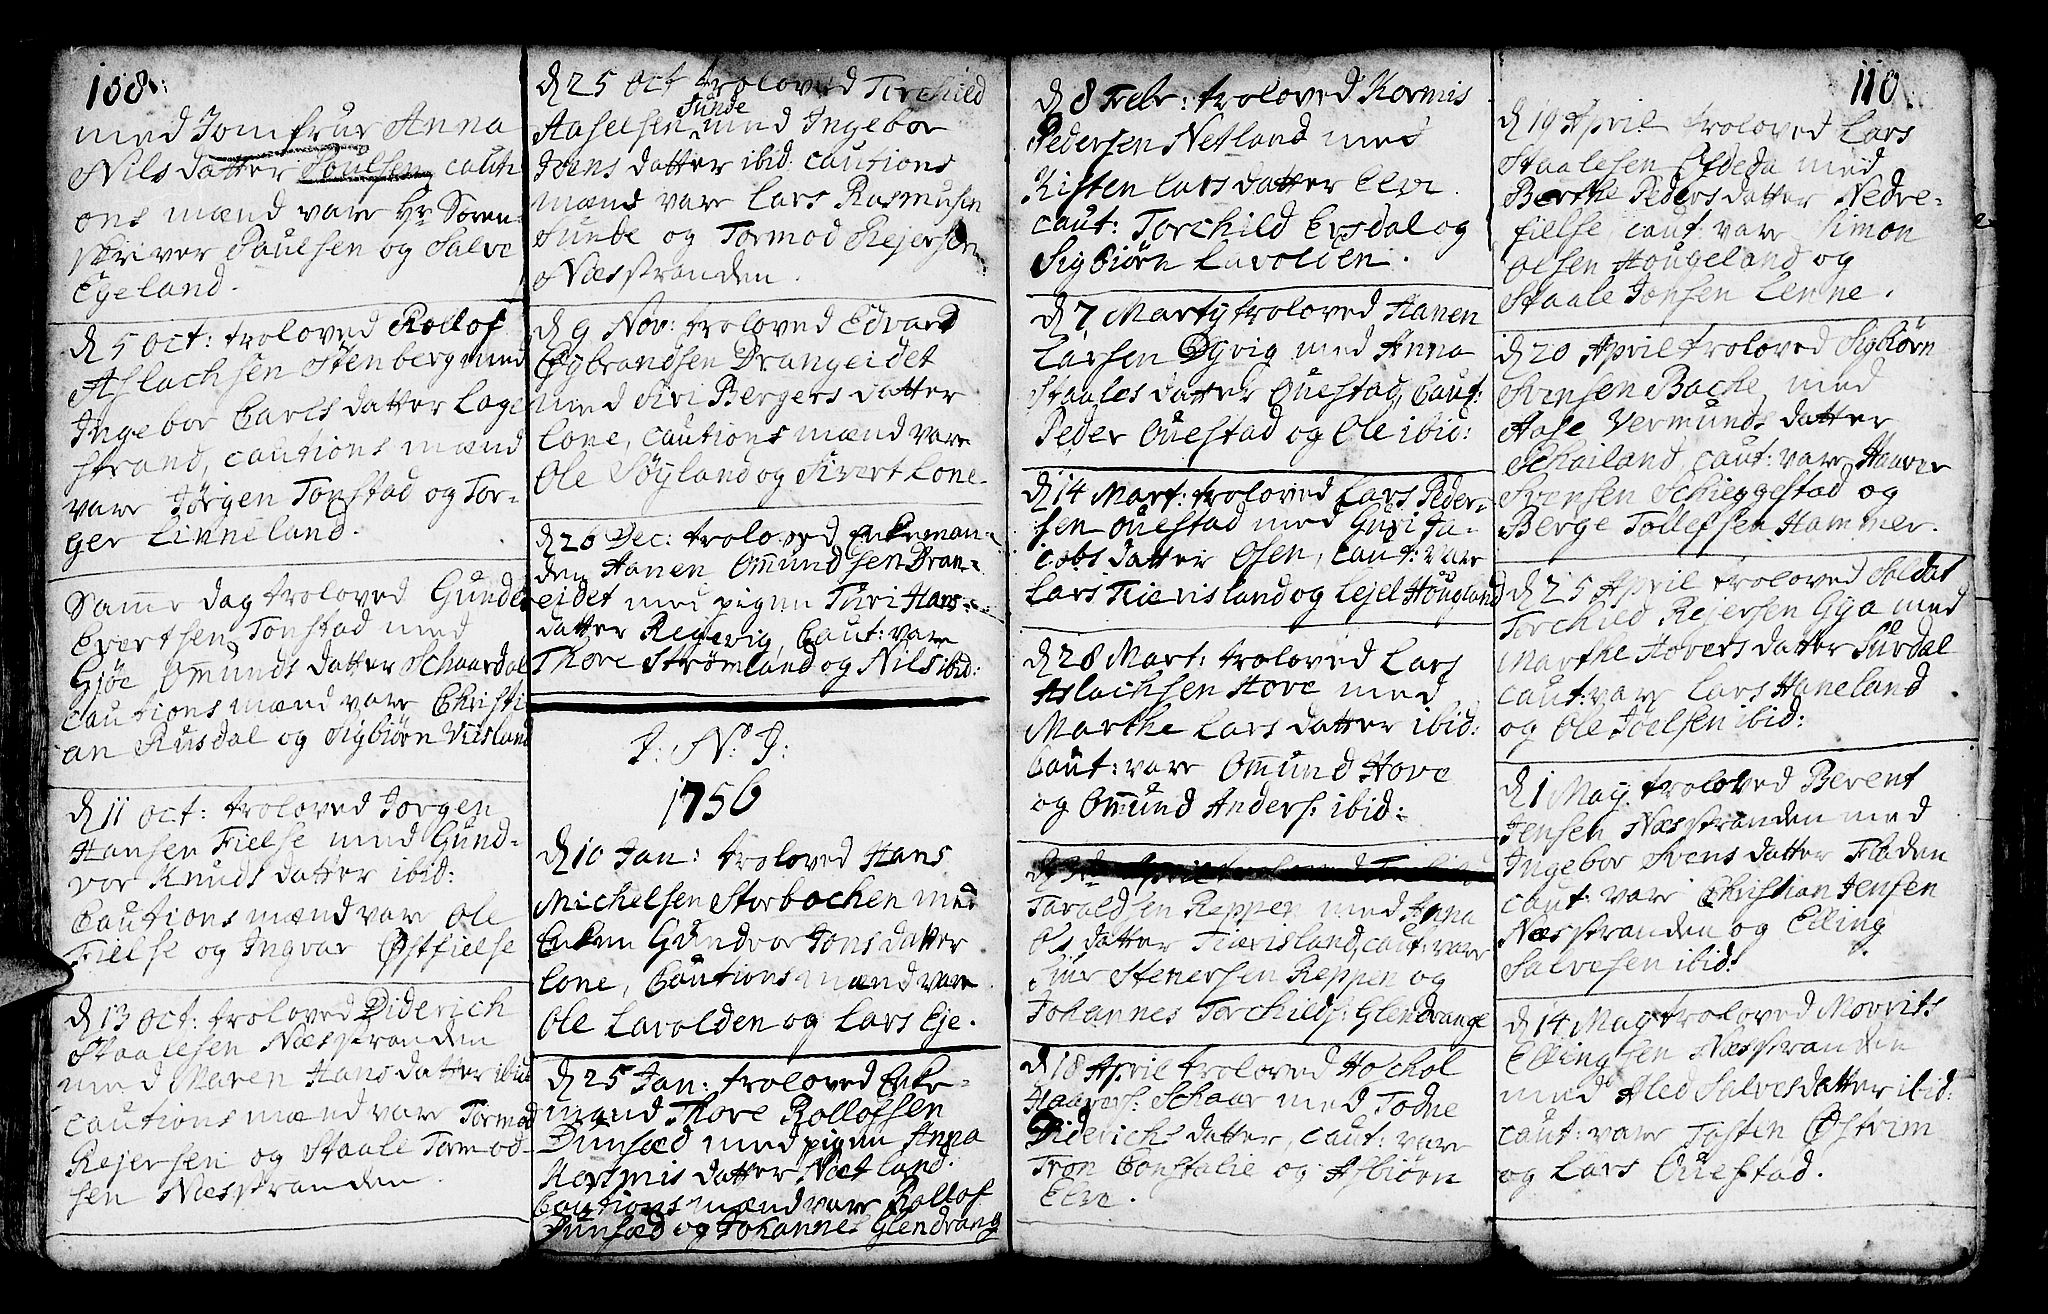 108.
med Jomfrue Anna
Nils datter Poulsen, cauti
ons mænd vare Hr Soren-
skriver Paulsen og Salve
Egeland.
d 5 Oct: troloved Rollof
Aslachsen Stenberg med
Ingebor Carls datter Lage
strand, cautions mænd
vare Jørgen Tonstad og Tor-
ger Linneland.
Samme dag troloved Gunder
Evertsen Tonstad med
Gjøe Omunds datter Schaardal
cautions mænd vare Christi
an Rusdal og Sigbiørn Viisland
d 11 Oct: troloved Jorgen
Hansen Fielse med Gund-
vor Knuds datter ibid:
Cautions mænd vare Ole
Fielse og Ingvar Østfielse
d 13 Oct: troloved Diderich
Staalesen Næsstranden
med Maren Hans datter ibid
cautions mænd vare Tormod
Rejersen og Staale Tormod-
sen Næsstranden.
d 25 Oct troloved Torchild
Sunde
Aaselsen med Ingebor
Jens datter ibid: cautions
mænd vare Lars Rasmusen
Sunde og Tormod Rejersen
Næsstranden.
d 9 Nov: troloved Edvard
Egbrandsen Drangeidet
med Siri Bergers datter
Lone, cautions mænd vare
Ole Søyland og Sivert Lone.
d 26 Dec: troloved Enkeman-
den Hanen Omundsen Dran-
eidet med pigen Turi Hans-
datter Regevig, Caut: vare
Thore Strømland og Nils ibid:
J: N: J:
1756
d 10 Jan: troloved Hans
Michelsen Storbochen med
Enken Gundvor Jons datter
Lone, Cautions mænd vare
Ole Lavolden og Lars Eje.
d 25 Jan: troloved Enke-
mand Thore Rollofsen
Dunsæd med pigen Anna
Kormis datter Nætland.
Cautions mænd vare Rollof
Dunsæd og Johannes Glendrang
d 8 Febr: troloved Kormis
Pedersen Netland med
Kisten Lars datter Elve.
caut: Torchild Ersdal og
Sigbiørn Lavolden.
d 7 Martÿ troloved Hanen
Larsen Dyvig med Anna
Staales datter Ouestad, Caut:
Peder Ouestad og Ole ibid:
d 14 Mart: troloved Lars Peder-
sen Ouestad med Guri Ja-
cobs datter Osen, Caut: vare
Lars Tierisland og Lejel Hougland
d 28 Mart: troloved Lars
Aslachsen Hove med
Marthe Lars datter ibid:
Caut: vare Omund Hove
og Omund Anders: ibid:
Taraldsen Reppen med Anna
Ols datter Tierisland, caut: vare
Stenersen Reppen og
Johannes Torchilds: Glendrange
d 18 April troloved Hochol
Haavers: Schaar med Todne
Diderichs datter, caut: vare
Tron Constalie og Asbiørn
Elve.
110.
d 19 April troloved Lars
Staalesen Efdeda med
Berthe Peders datter Nedre-
fielse, caut: vare Simon
Olsen Hougeland og
Staale Jonsen Lenne.
d 20 April troloved Sigbiørn
Svensen Backe med
Aase Vermunds datter
Schailand caut: vare Haaver
Svensen Schieggestad og
Berge Tollefsen Hammer.
d 25 April troloved Soldat
Torchild Rejersen Gya med
Marthe Hovers datter Surdal
caut: vare Lars Haneland
og Ole Joelsen ibid:
d 1 May troloved Berent
Jensen Næsstranden med
Ingebor Svens datter Fladen
caut: vare Christian Jensen
Næsstranden og Elling
Salvesen ibid:
d 14 May troloved Movrits
Ellingsen Næsstranden
med Aled Salves datter ibid:
caut: vare Tosten Østrim
og Lars Ouestad.